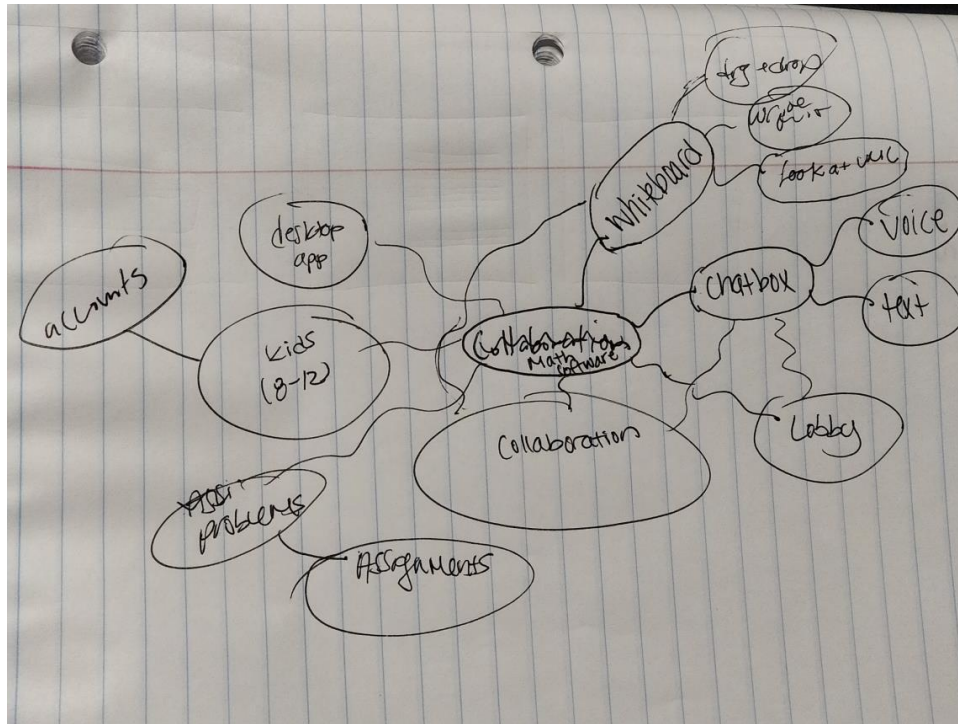 drag + drop
write
Look at
Whiteboard
Voice
desktop
app
Chatbox
text
accounts
kids
(8-12)
Collaboration
Math
software
Collaboration
Lobby
problems
Assignments